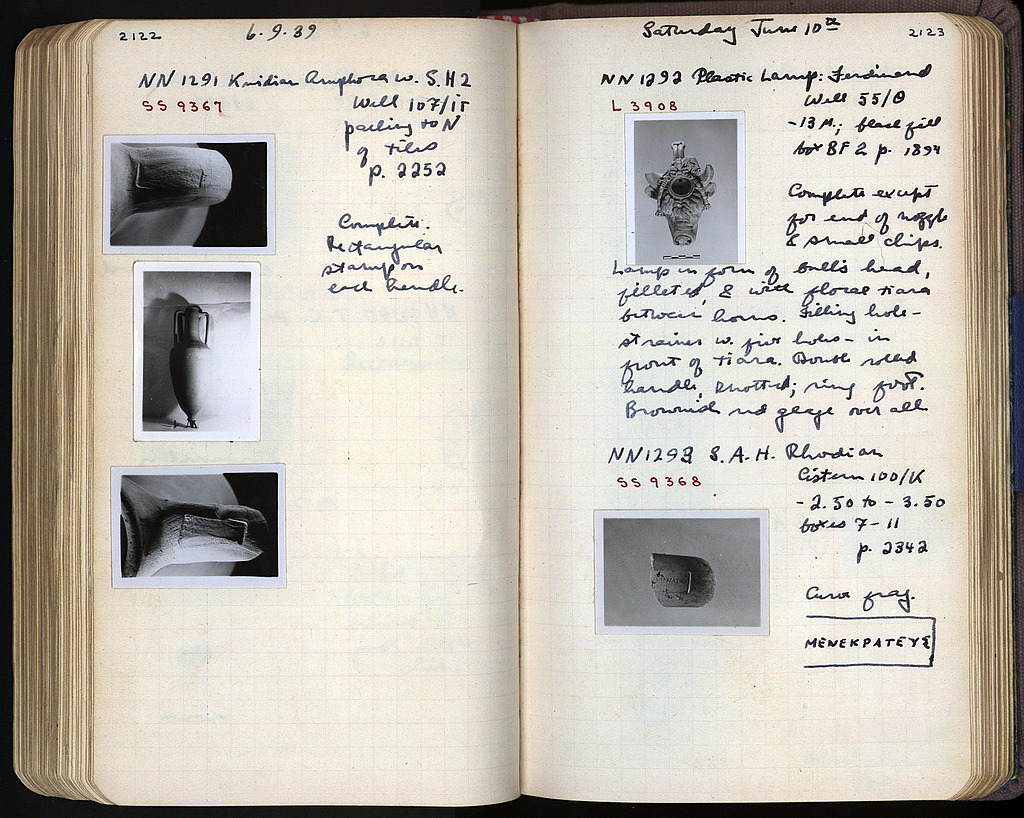 2122
6.9.39
NN 1291 Knidian Amphora w. S.H 2
SS 9367
Well 107/ΙΣΤ
packing to N
of tiles
p. 2252
Complete.
Rectangular
stamp on
each handle.
Saturday June 10th
2123
NN 1292 Plastic Lamp: Ferdinand
L 3908
Well 55/Θ
-13 M.; black fill
box BF 2 p. 1894
Complete except
for end of nozzle
& small chips.
Lamp in form of bull's head,
filleted, & with floral tiara
between horns. Filling hole -
strainer w. five holes - in
front of tiara. Double rolled
handle, knotted; ring foot.
Brownish red glaze over all
NN 1293 S.A.H. Rhodian
SS 9368
Cistern 100/K
- 2.50 to - 3.50
boxes 7 - 11
p. 2342
Curve frag.
ΜΕΝΕΚΡΑΤΕΥΣ